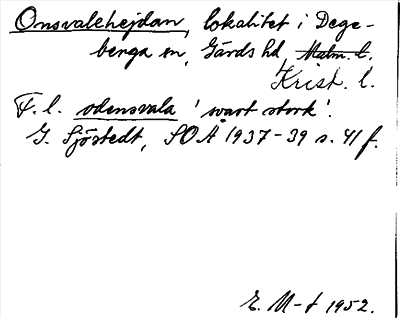 Onsvalehejdan, lokalitet i Dege-
berga sn, Gärds hd Malm. l.
Krist. l.
F. l. odensvala 'svart stork'.
G. Sjöstedt, SOÅ 1937-39 s. 41 f.
E. M-t 1952.